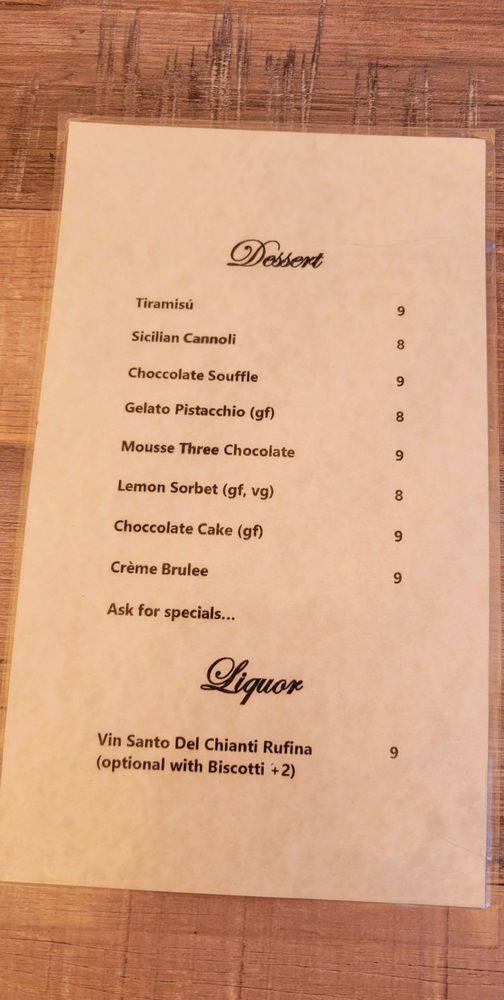 Dessert
Tiramisú 9
Sicilian Cannoli 8
Choccolate Souffle 9
Gelato Pistacchio (gf) 8
Mousse Three Chocolate 9
Lemon Sorbet (gf, vg) 8
Choccolate Cake (gf) 9
Crème Brulee 9
Ask for specials...
Liquor
Vin Santo Del Chianti Rufina 9
(optional with Biscotti +2)